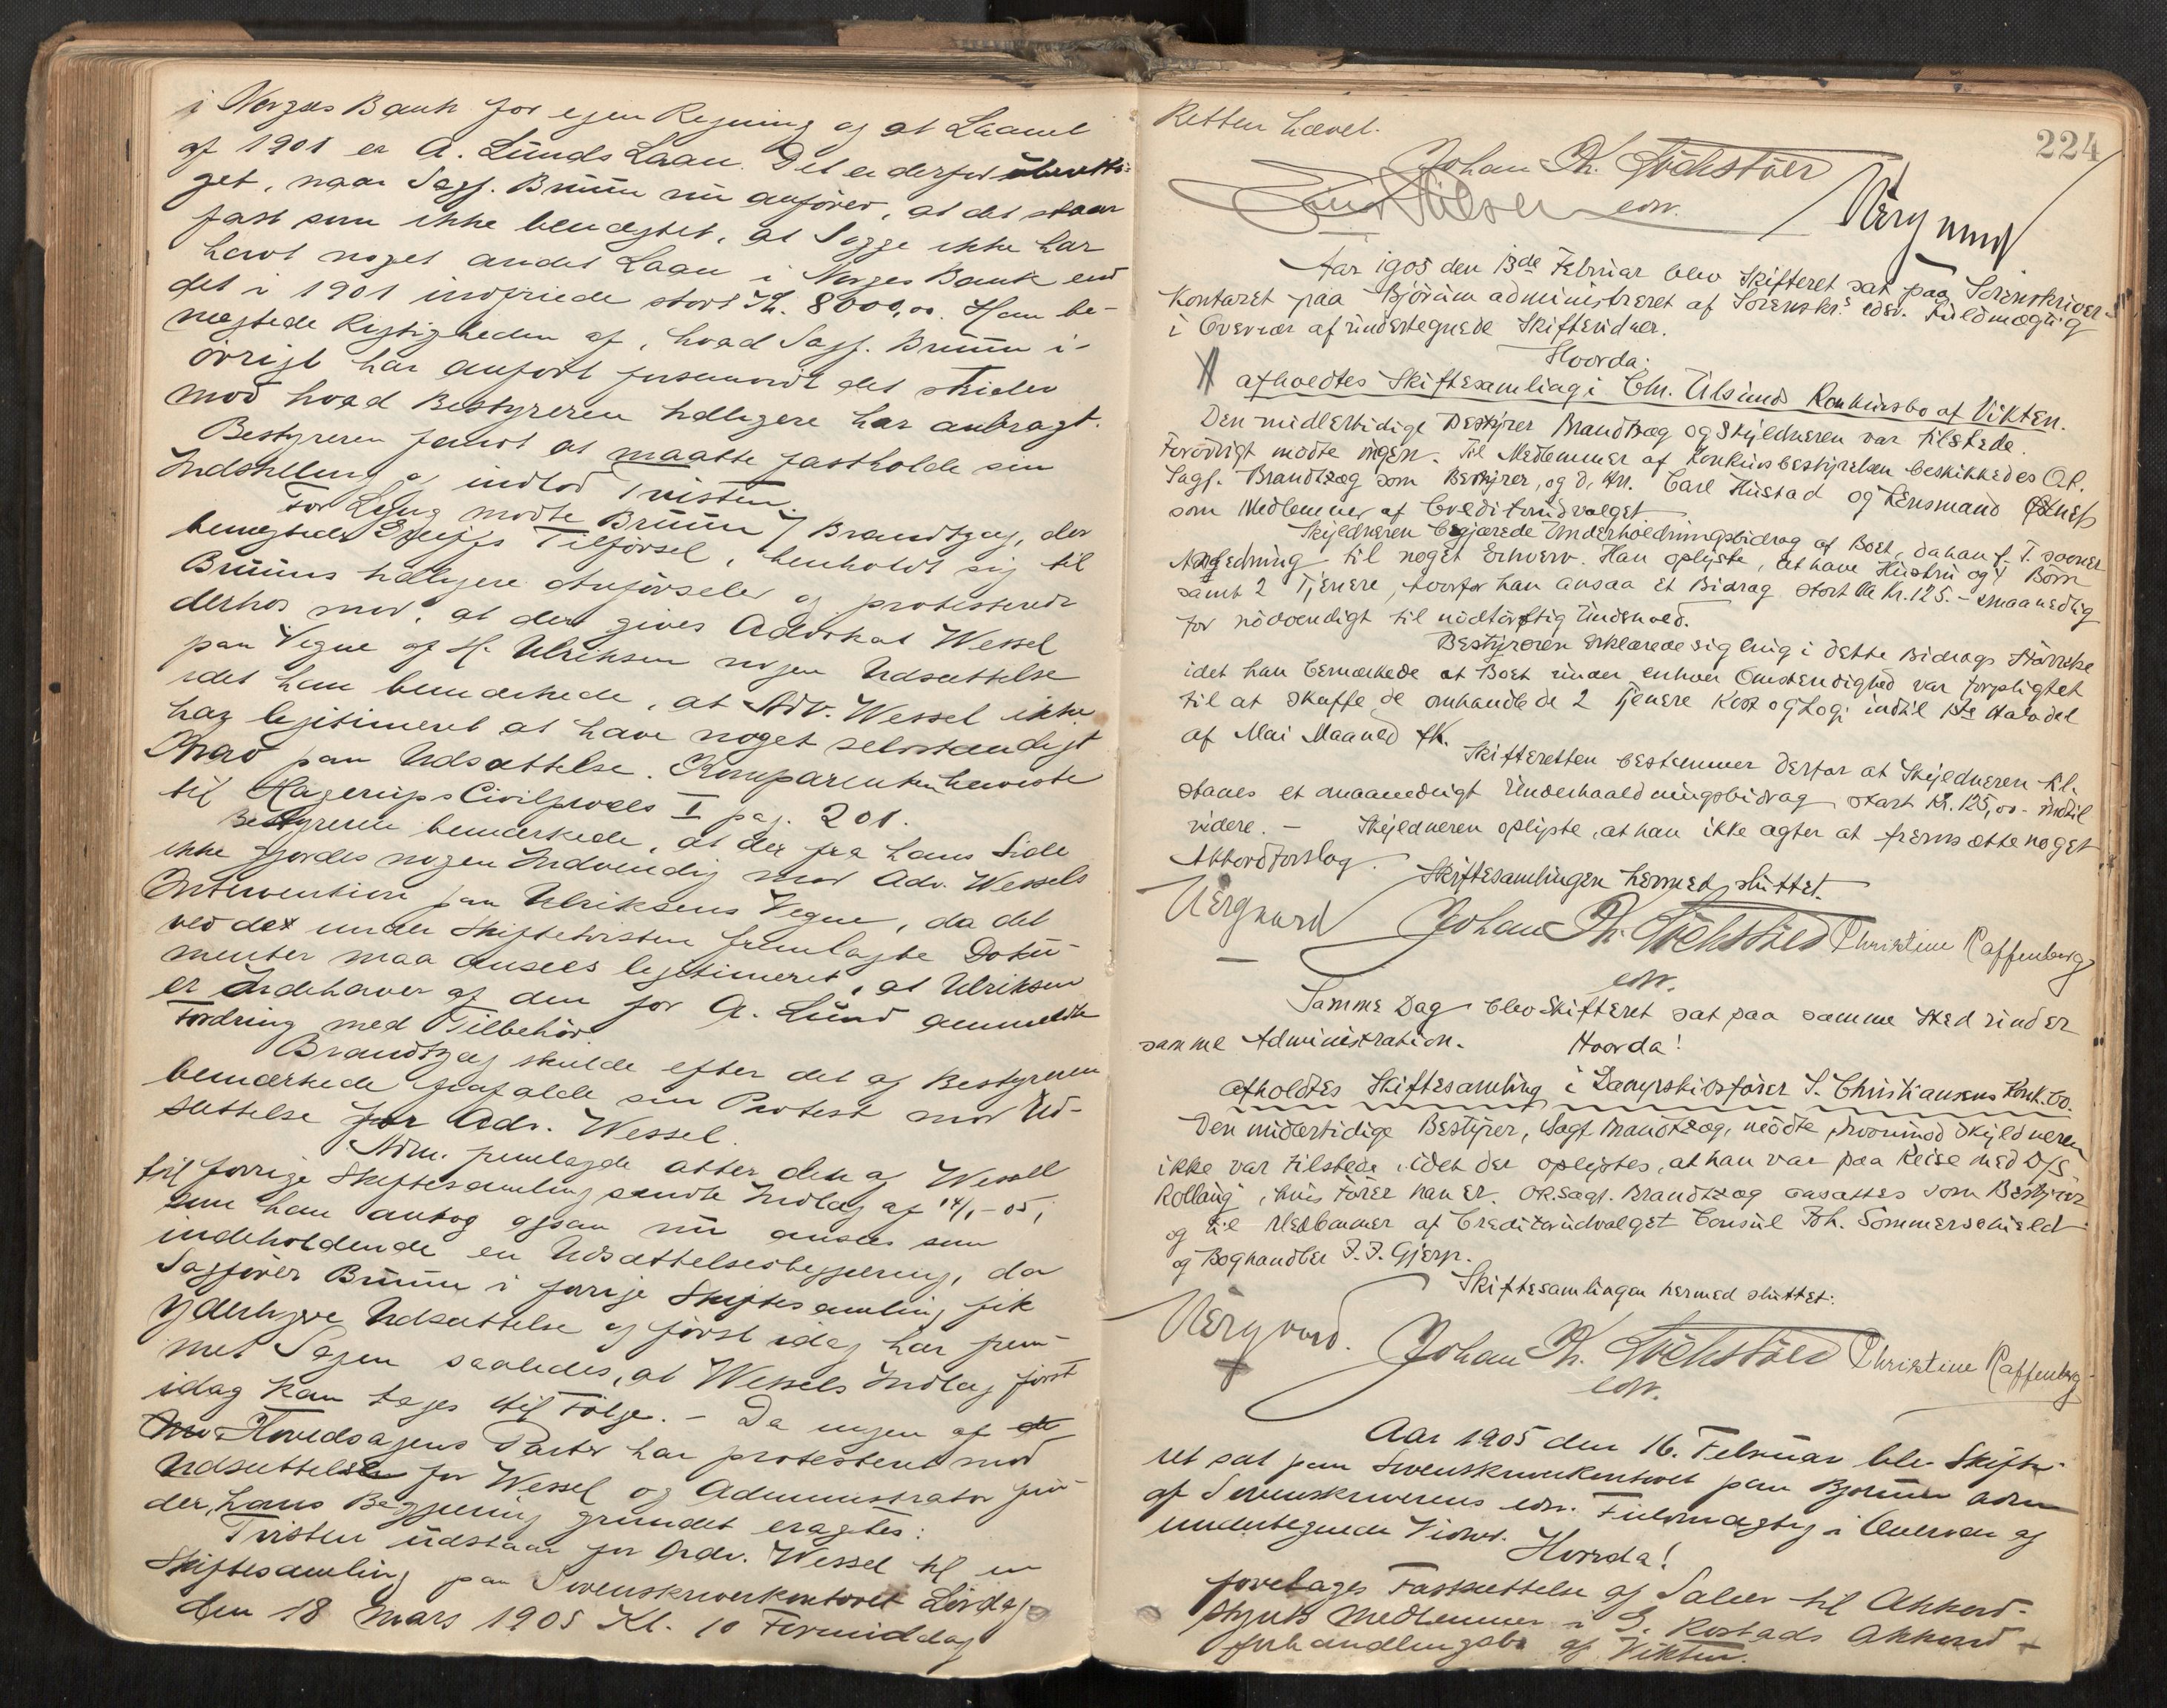 i Norges Bank for egen Regning og at Laanet
af 1901 er A. Lunds Laan. Det er derfor
get, naar Sagf. Bruun nu anfører, at det staar
fast som ikke benegtet, at Sagge ikke har
havt noget andet Laan i Norges Bank end
det i 1901 indfriede stort Kr. 8000,00. Han be-
negtede Rigtigheden af, hvad Sagf. Bruun i-
øvrigt har anført forsaavidt det strider
mod hvad Bestyreren tidligere har anbragt.
Bestyreren fandt at maatte fastholde sin
Indstilling og indlod Tvisten.
For Lyng mødte Bruun v/ Brandtzæg, der
benegtede Tilførsel, henholdt sig til
Bruuns tidligere Anførseler og protesterede
derhos mod, at der gives Advokat Wessel
paa Vegne af H. Ulriksen nogen Udsættelse
idet han bemærkede, at Adv. Wessel ikke
har legitimeret at have noget selvstændigt
Krav paa Udsættelse. Komparenten henviste
til Hagerups Civilproces I pag. 201.
Bestyreren bemærkede, at der fra hans Side
ikke gjordes nogen Indvending mod Adv. Wessels
Intervention paa Ulriksens Vegne, da det
ved det under Skiftetvisten fremlagte Doku-
menter maa ansees legitimeret, at Ulriksen
er Indehaver af den for A. Lund anmeldte
Fordring med Tilbehør.
Brandtzæg skulde efter det af Bestyreren
bemærkede frafalde sin Protest mod Ud-
sættelse for Adv. Wessel.
Adm. fremlagde atter den af Wessel
til forrige Skiftesamling sendte Indlæg af 14/1-05,
som han antog ogsaa nu ansees som
indeholdende en Udsættelsesbegjæring, da
Sagfører Bruun i forrige Skiftesamling fik
yderligere Udsættelse og først idag har frem-
met Sagen saaledes, at Wessels Indlæg først
idag kan tages til Følge. - Da ingen af
Hovedsagens Parter har protesteret mod
Udsættelse for Wessel og Administrator fin-
der hans Begjæring grundet eragtes:
Tvisten udstaar for Adv. Wessel til en
Skiftesamling paa Sorenskriverkontoret Lørdag
den 18 Mars 1905 Kl. 10 Formiddag
224
Retten hævet.
Johan Th.
edv.
Aar 1905 den 13de Februar blev Skifteret sat paa Sorenskriver-
Kontoret paa Bjørum administreret af Sorenskr.s edsv. Fuldmægtig
i Overvær af undertegnede Skiftevidner.
Hvorda:
afholdtes Skiftesamling i Chr. Ulsunds Konkursbo af Vikten.
Den midlertidige Bestyrer Brandtzæg og Skyldneren var tilstede.
Forøvrigt mødte ingen. Til Medlemmer af Konkursbestyrelsen beskikkedes O.R.
Sagf. Brandtzæg som Bestyrer, og D'Hrr. Carl Hustad og Lensmand
som Medlemmer af Creditorudvalget
Skyldneren begjærede Underholdningsbidrag af Boet, da han p. T. savner
Anledning til noget Erhverv. Han oplyste, at have Hustru og 4 Børn
samt 2 Tjenere, hvorfor han ansaa et Bidrag stort Kr. 125.- maanedlig
for nødvendigt til nødtørftig Underhold.
Bestyreren erklærede sig enig i dette Bidrags Størrelse
idet han bemærkede at Boet under enhver Omstændighed var forpligtet
til at skaffe de omhandlede 2 Tjenere Kost og Logi indtil 1ste Halvdel
af Mai Maaned fk.
Skifteretten bestemmer derfor at Skyldneren til-
staaes et maanedligt Underholdningsbidrag stort Kr. 125,00.- indtil
videre. - Skyldneren oplyste, at han ikke agter at fremsætte noget
Akkordforslag.
Skiftesamlingen hermed sluttet.
Johan Th. Christine Raffenberg
edv.
Samme Dag blev Skifteret sat paa samme Sted under
samme Administration. Hvorda!
afholdtes Skiftesamling i Dampskibsfører S. Christiansens Konk.bo.
Den midlertidige Bestyrer, Sagf. Brandtzæg, mødte, hvorimod Skyldneren
ikke var tilstede, idet det oplystes, at han var paa Reise med D/S
"Rollaug", hvis Fører han er. O.R.Sagf. Brandtzæg ansattes som Bestyrer
og til Medlemmer af Creditorudvalget Consul Joh. Sommerschield
og Boghandler J. J. Gjerp.
Skiftesamlingen hermed sluttet:
Johan Th. Christine Raffenberg
edv.
Aar 1905 den 16. Februar blev Skifte-
ret sat paa Sorenskriverkontoret paa Bjørum adm.
af Sorenskriverens edv. Fuldmægtig i Overvær af
undertegnede Vidner. Hvorda!
foretages Fastsættelse af Salær til Akkord-
styrets Medlemmer i G. Rostads Akkord-
forhandlingsbo af Vikten.